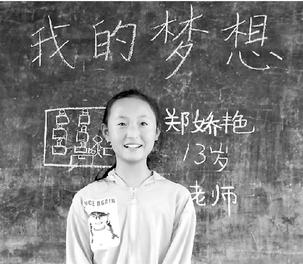 我的梦想
郑娇艳
13岁
老师